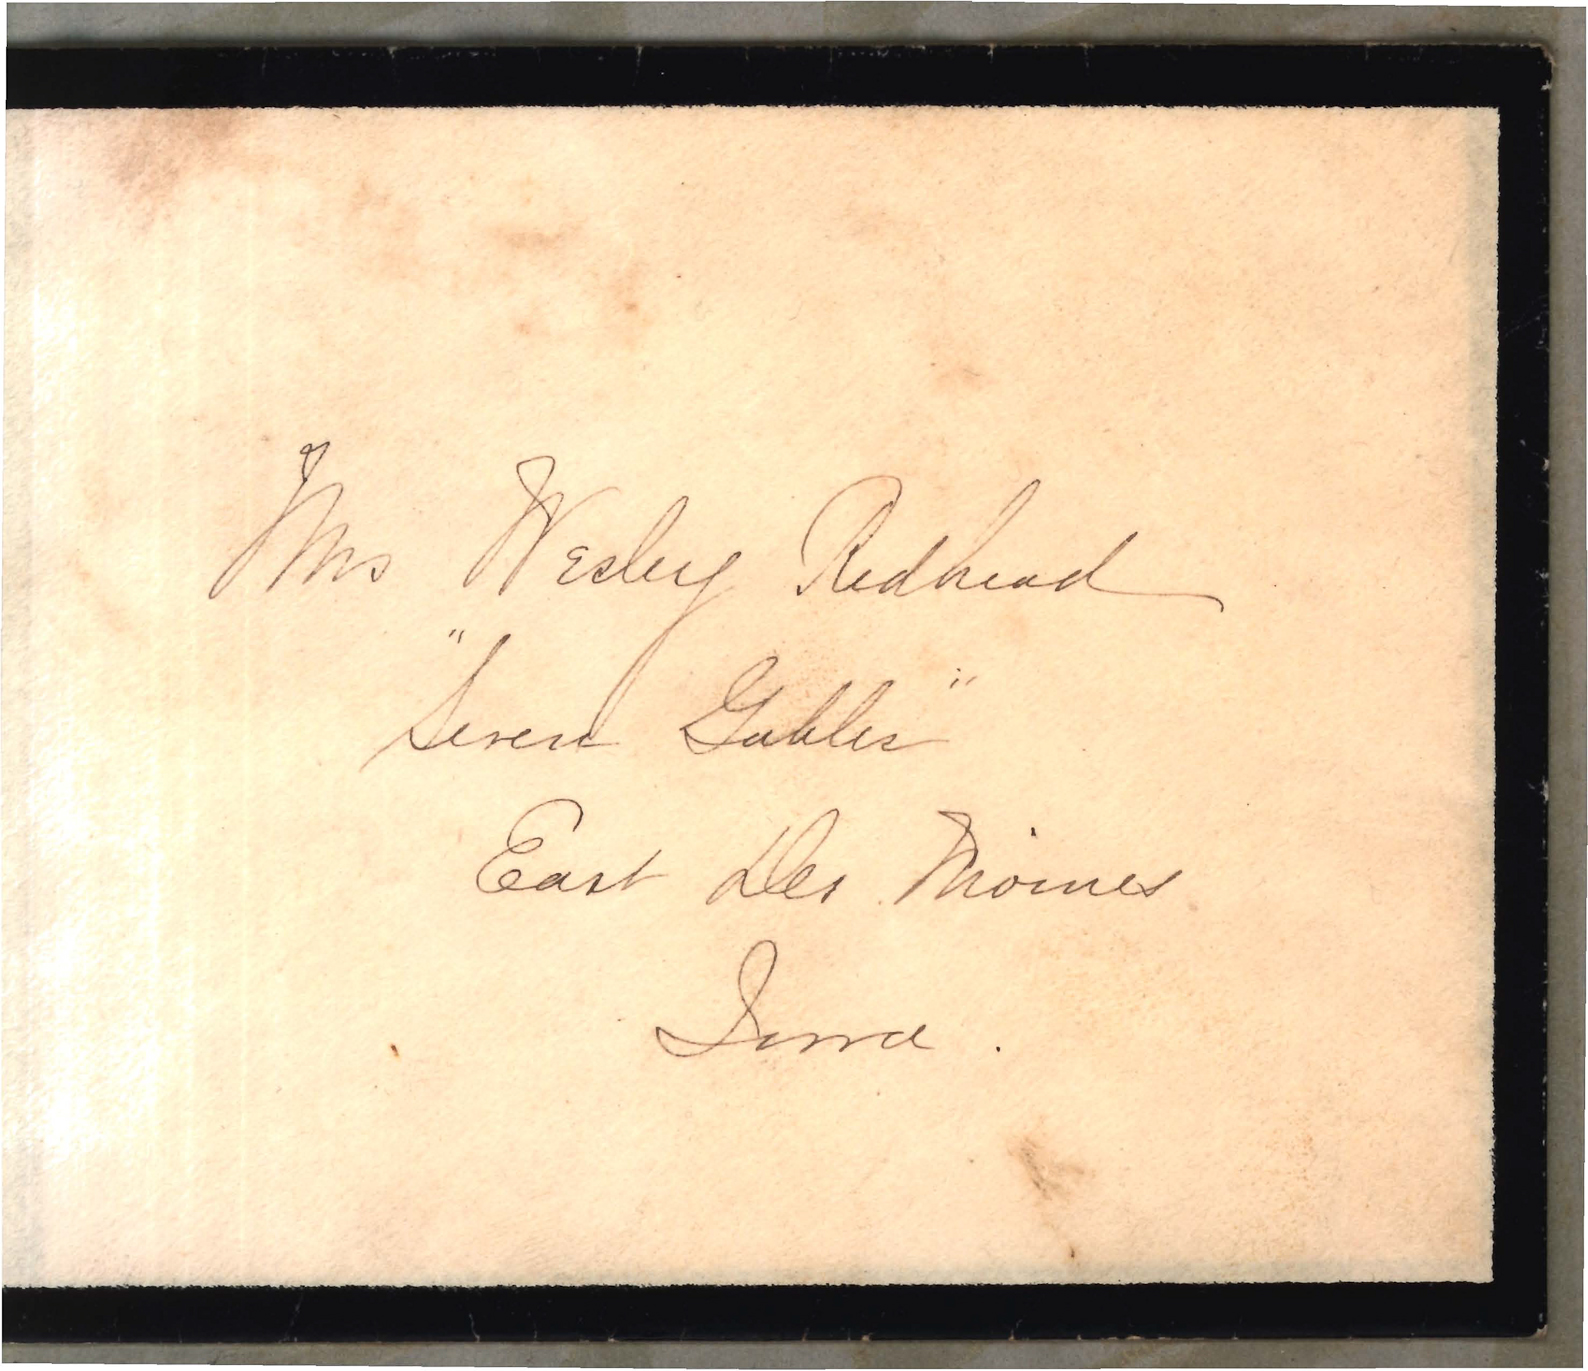 Mrs Wesley Redhead
"Seven Gables"
East Des Moines
Iowa.